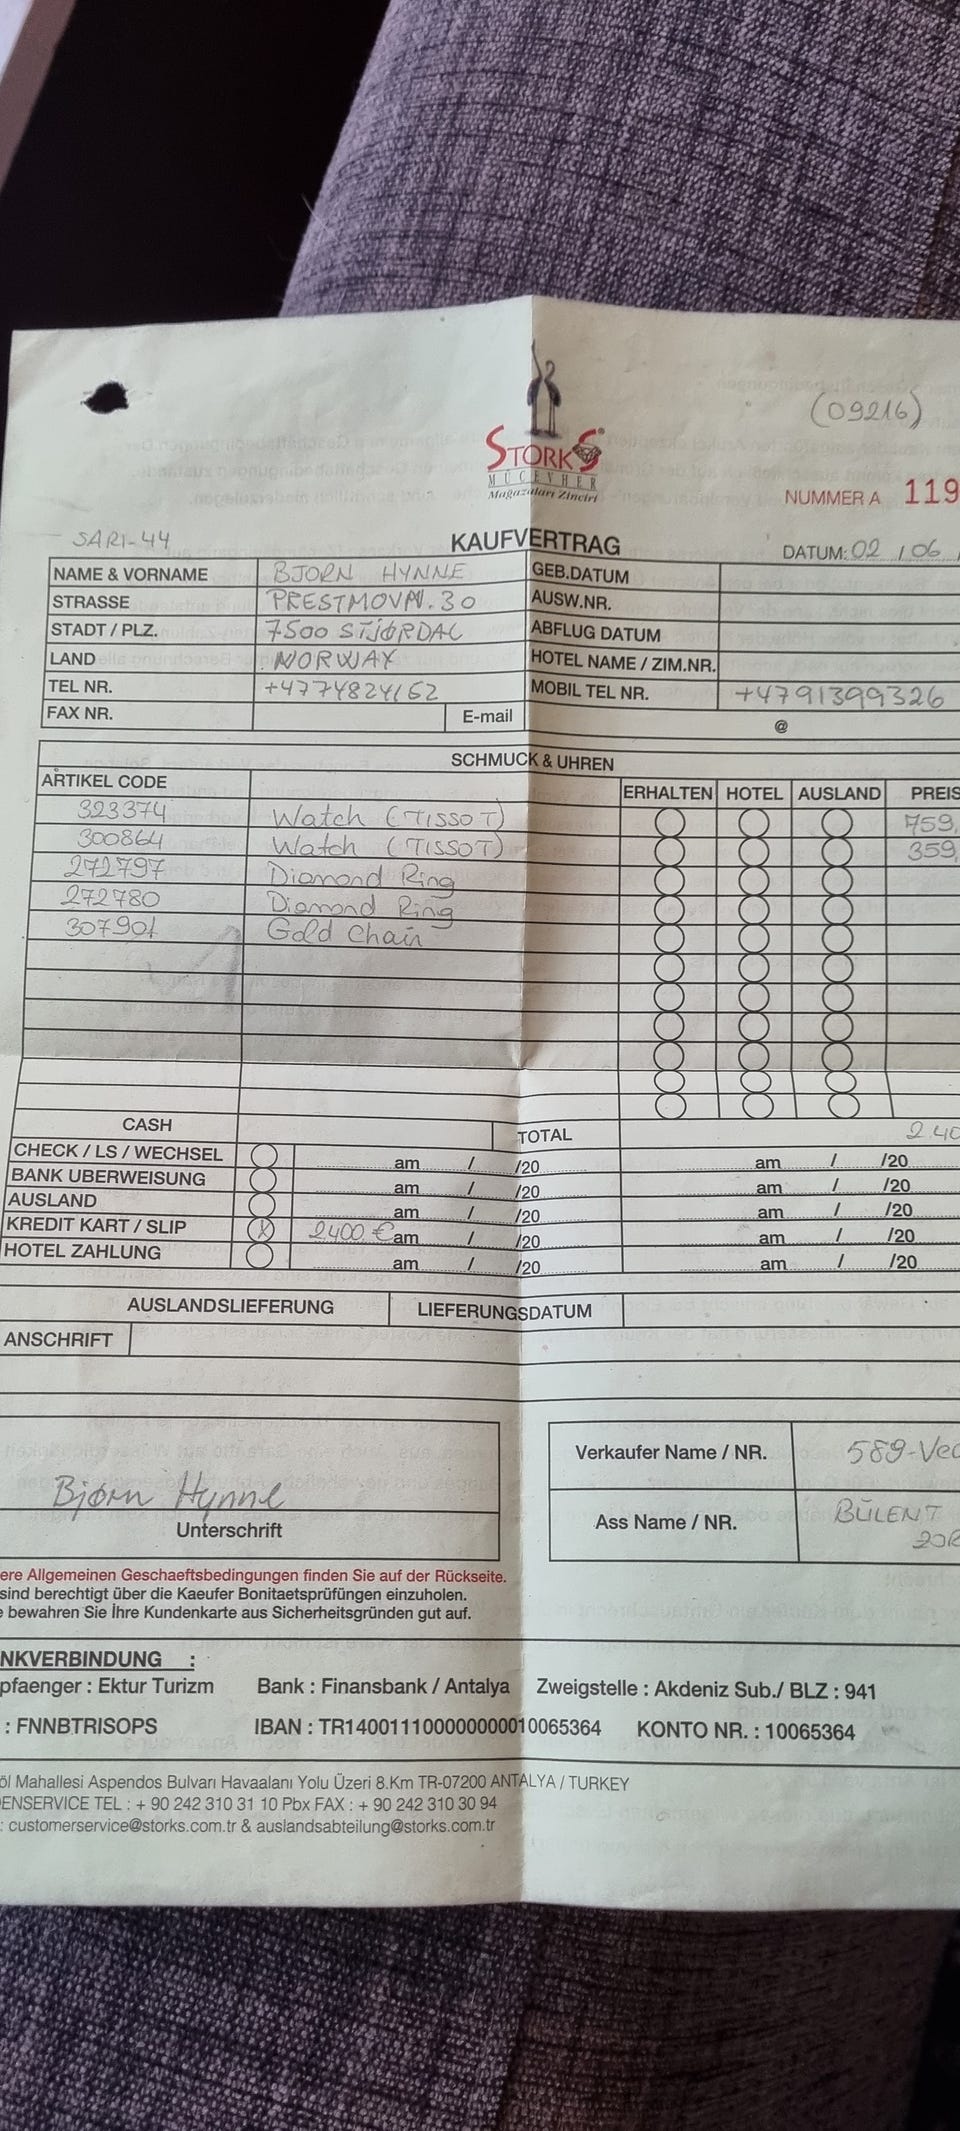 (09216)
STORKS®
MÜCEVHER
Mağazaları Zinciri
NUMMER A 119
SARI-44
KAUFVERTRAG
DATUM: 02 / 06 /
NAME & VORNAME BJORN HYNNE GEB.DATUM
STRASSE PRESTMOVN. 30 AUSW.NR.
STADT / PLZ. 7500 STJØRDAL ABFLUG DATUM
LAND NORWAY HOTEL NAME / ZIM.NR.
TEL NR. +4774824162 MOBIL TEL NR. +4791399326
FAX NR. E-mail @
SCHMUCK & UHREN
ARTIKEL CODE ERHALTEN HOTEL AUSLAND PREIS
323374 Watch (TISSOT) 759,
300864 Watch (TISSOT) 359,
272797 Diamond Ring
272780 Diamond Ring
307901 Gold Chain
CASH TOTAL 240
CHECK / LS / WECHSEL am / /20 am / /20
BANK UBERWEISUNG am / /20 am / /20
AUSLAND am / /20 am / /20
KREDIT KART / SLIP X 2400 € am / /20 am / /20
HOTEL ZAHLUNG am / /20 am / /20
AUSLANDSLIEFERUNG LIEFERUNGSDATUM
ANSCHRIFT
Verkaufer Name / NR. 589-Ved
Bjørn Hynne
Unterschrift
Ass Name / NR. BÜLENT
ere Allgemeinen Geschaeftsbedingungen finden Sie auf der Rückseite.
sind berechtigt über die Kaeufer Bonitaetsprüfungen einzuholen.
e bewahren Sie İhre Kundenkarte aus Sicherheitsgründen gut auf.
NKVERBINDUNG :
pfaenger : Ektur Turizm Bank : Finansbank / Antalya Zweigstelle : Akdeniz Sub./ BLZ : 941
: FNNBTRISOPS IBAN : TR140011100000000010065364 KONTO NR. : 10065364
öl Mahallesi Aspendos Bulvarı Havaalanı Yolu Üzeri 8.Km TR-07200 ANTALYA / TURKEY
DENSERVICE TEL : + 90 242 310 31 10 Pbx FAX : + 90 242 310 30 94
: customerservice@storks.com.tr & auslandsabteilung@storks.com.tr